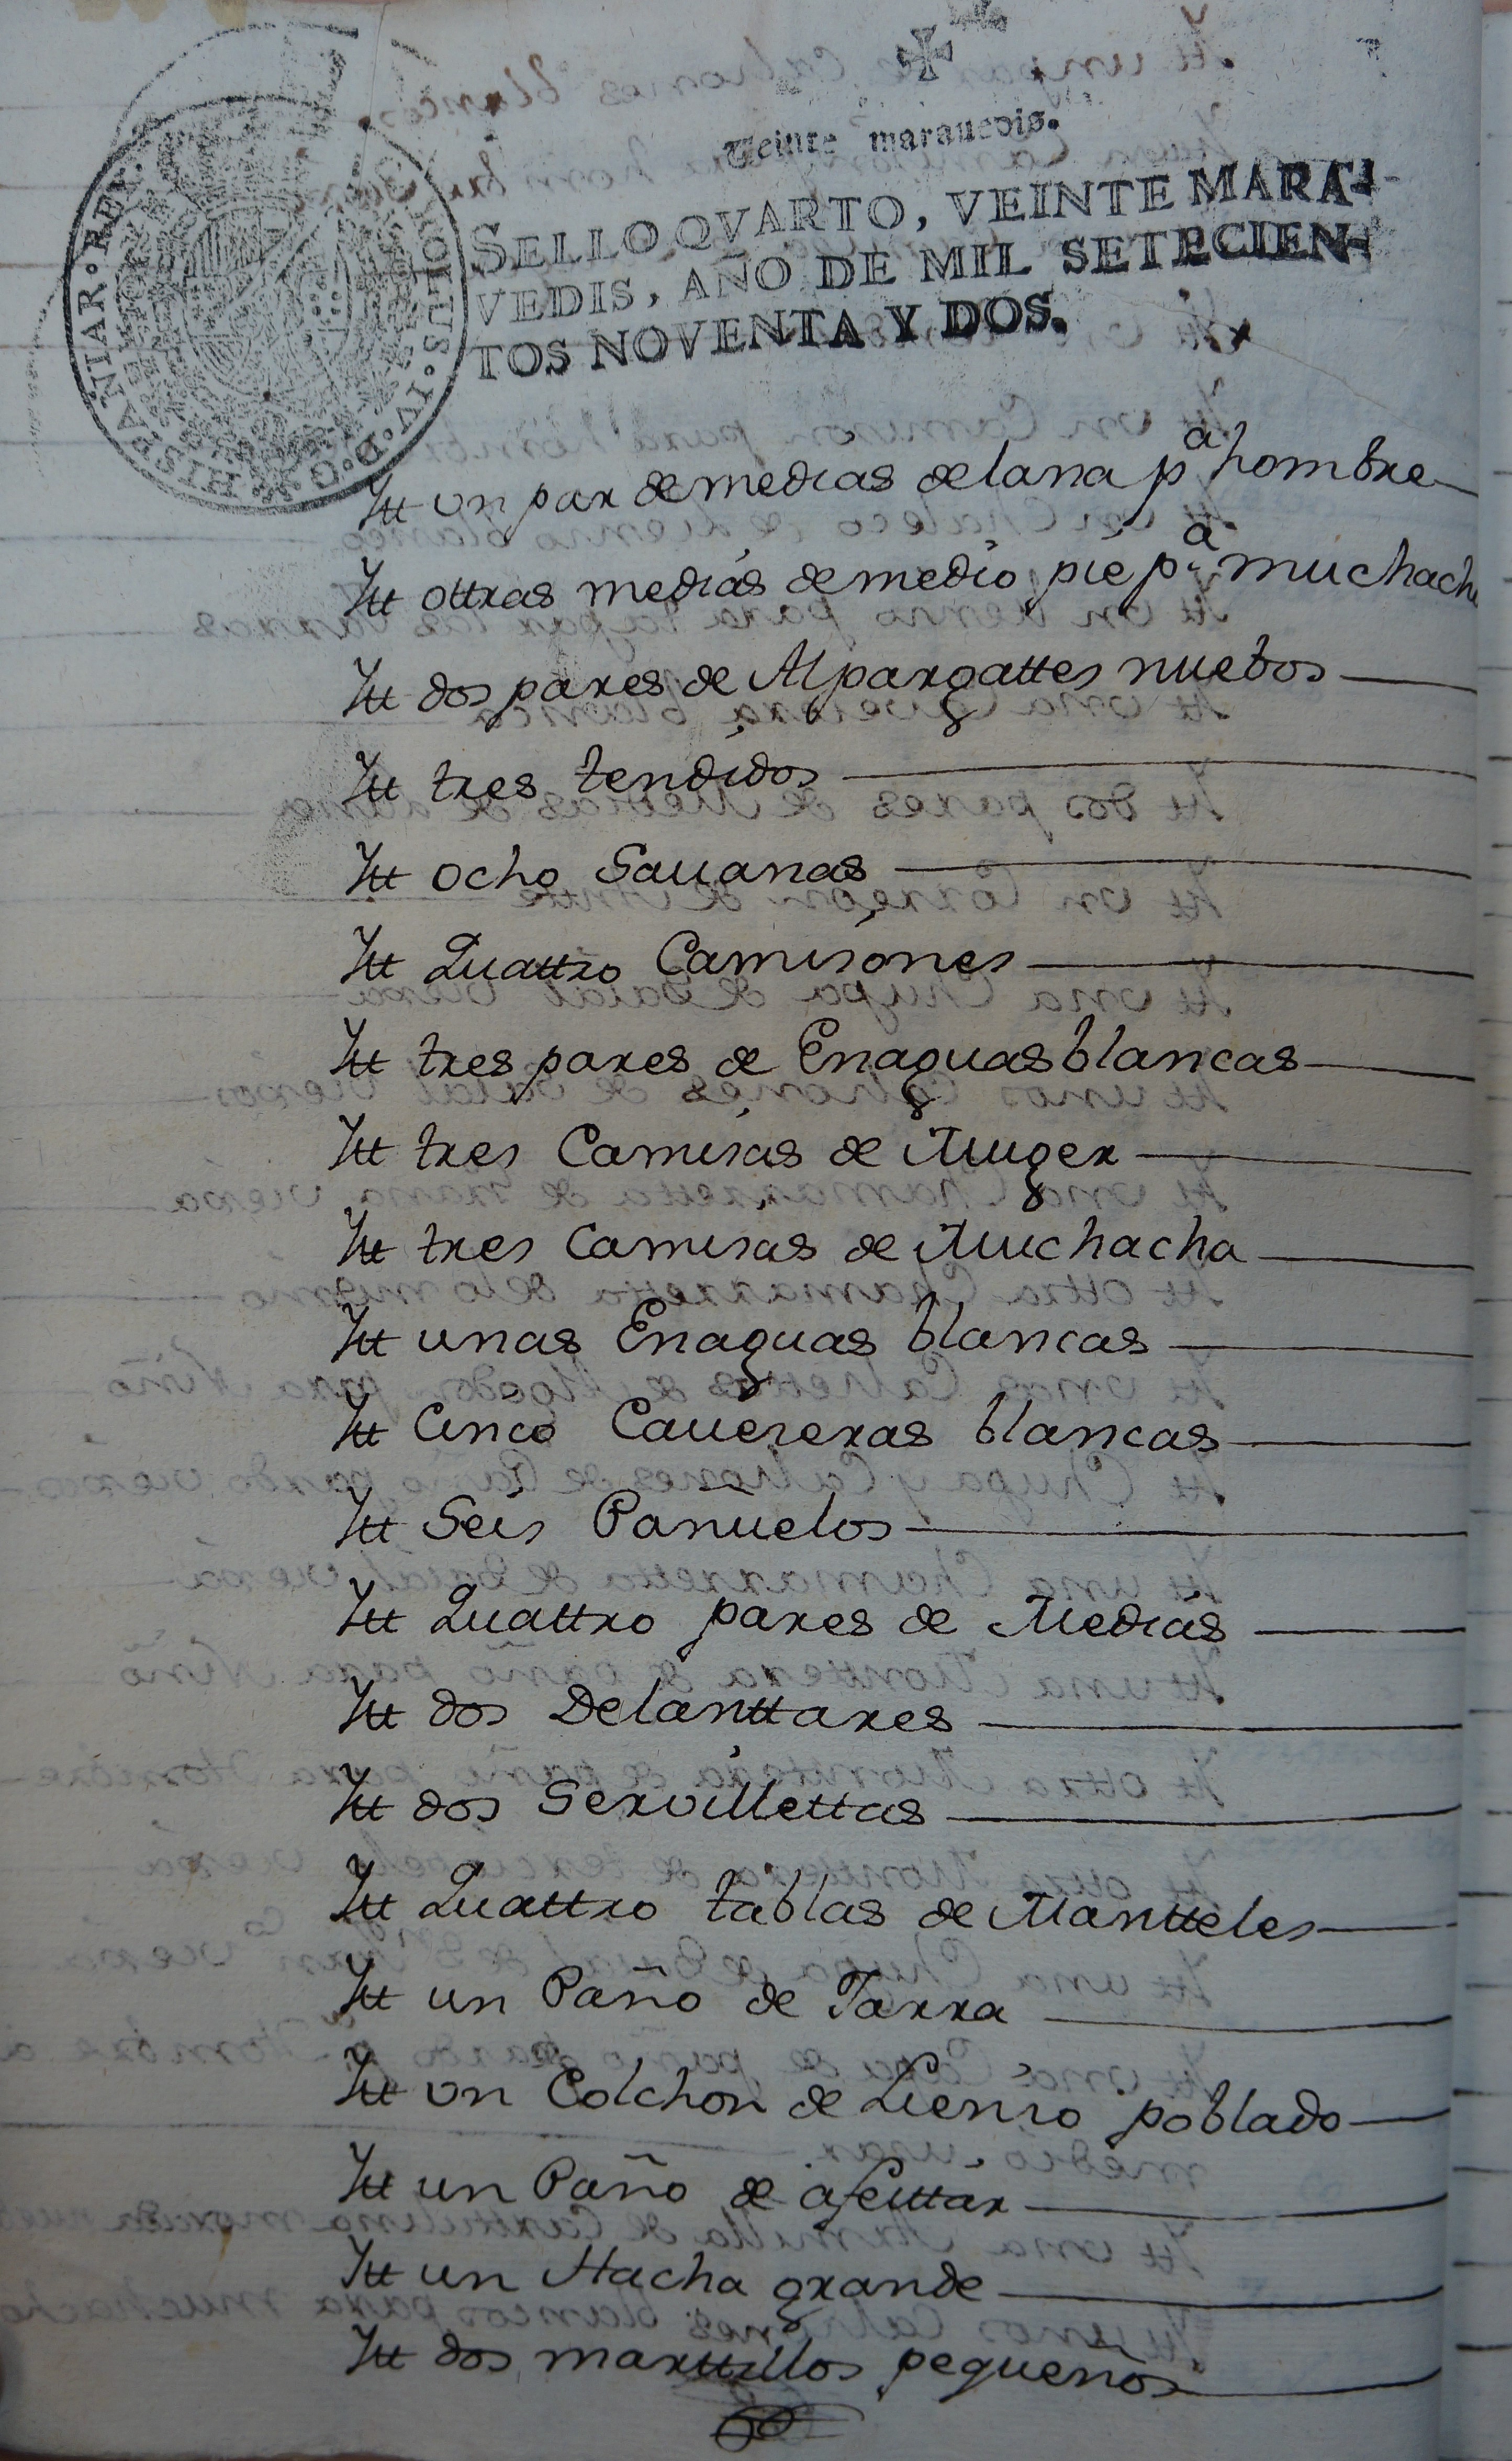 Veinte marauedis.
SELLO QVARTO, VEINTE MARA-
VEDIS, AÑO DE MIL SETECIEN-
TOS NOVENTA Y DOS.
HISPANIAR · REX ·
CAROLUS · IV · D · G ·
Itt un par de medias de lana pª hombre
Itt ottras medias de medio pie pª muchach
Itt dos pares de Alpargattes nuebos
Itt tres tendidos
Itt ocho Sauanas
Itt Quattro Camisones
Itt tres pares de Enaguas blancas
Itt tres Camisas de Muger
Itt tres Camisas de Muchacha
Itt unas Enaguas blancas
Itt Cinco Caueseras blancas
Itt Seis Pañuelos
Itt Quattro pares de Medias
Itt dos Delanttares
Itt dos Servillettas
Itt Quattro tablas de Mantteles
Itt un Paño de Jarra
Itt un Colchon de Lienso poblado
Itt un Paño de afeittar
Itt un Hacha grande
Itt dos marttillos pequeños